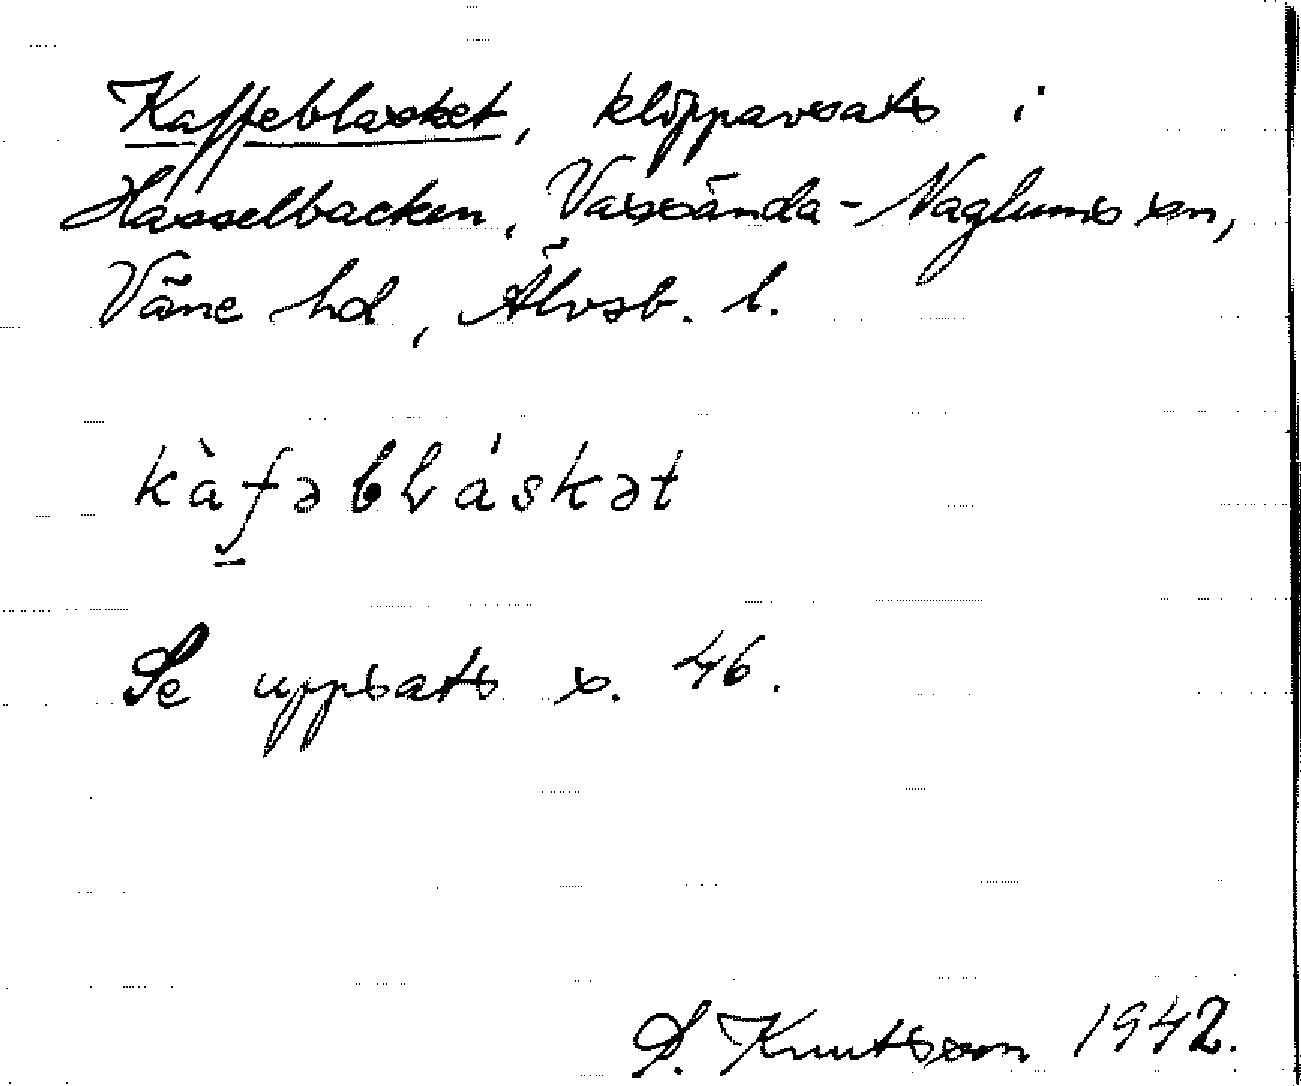 Kaffeblasket, klöppavsats i
Hasselbacken, Vassända-Naglums sn,
Väne hd, Älvsb. l.
kàfəbláskət
Se uppsats s. 46.
S. Knutsson 1942.